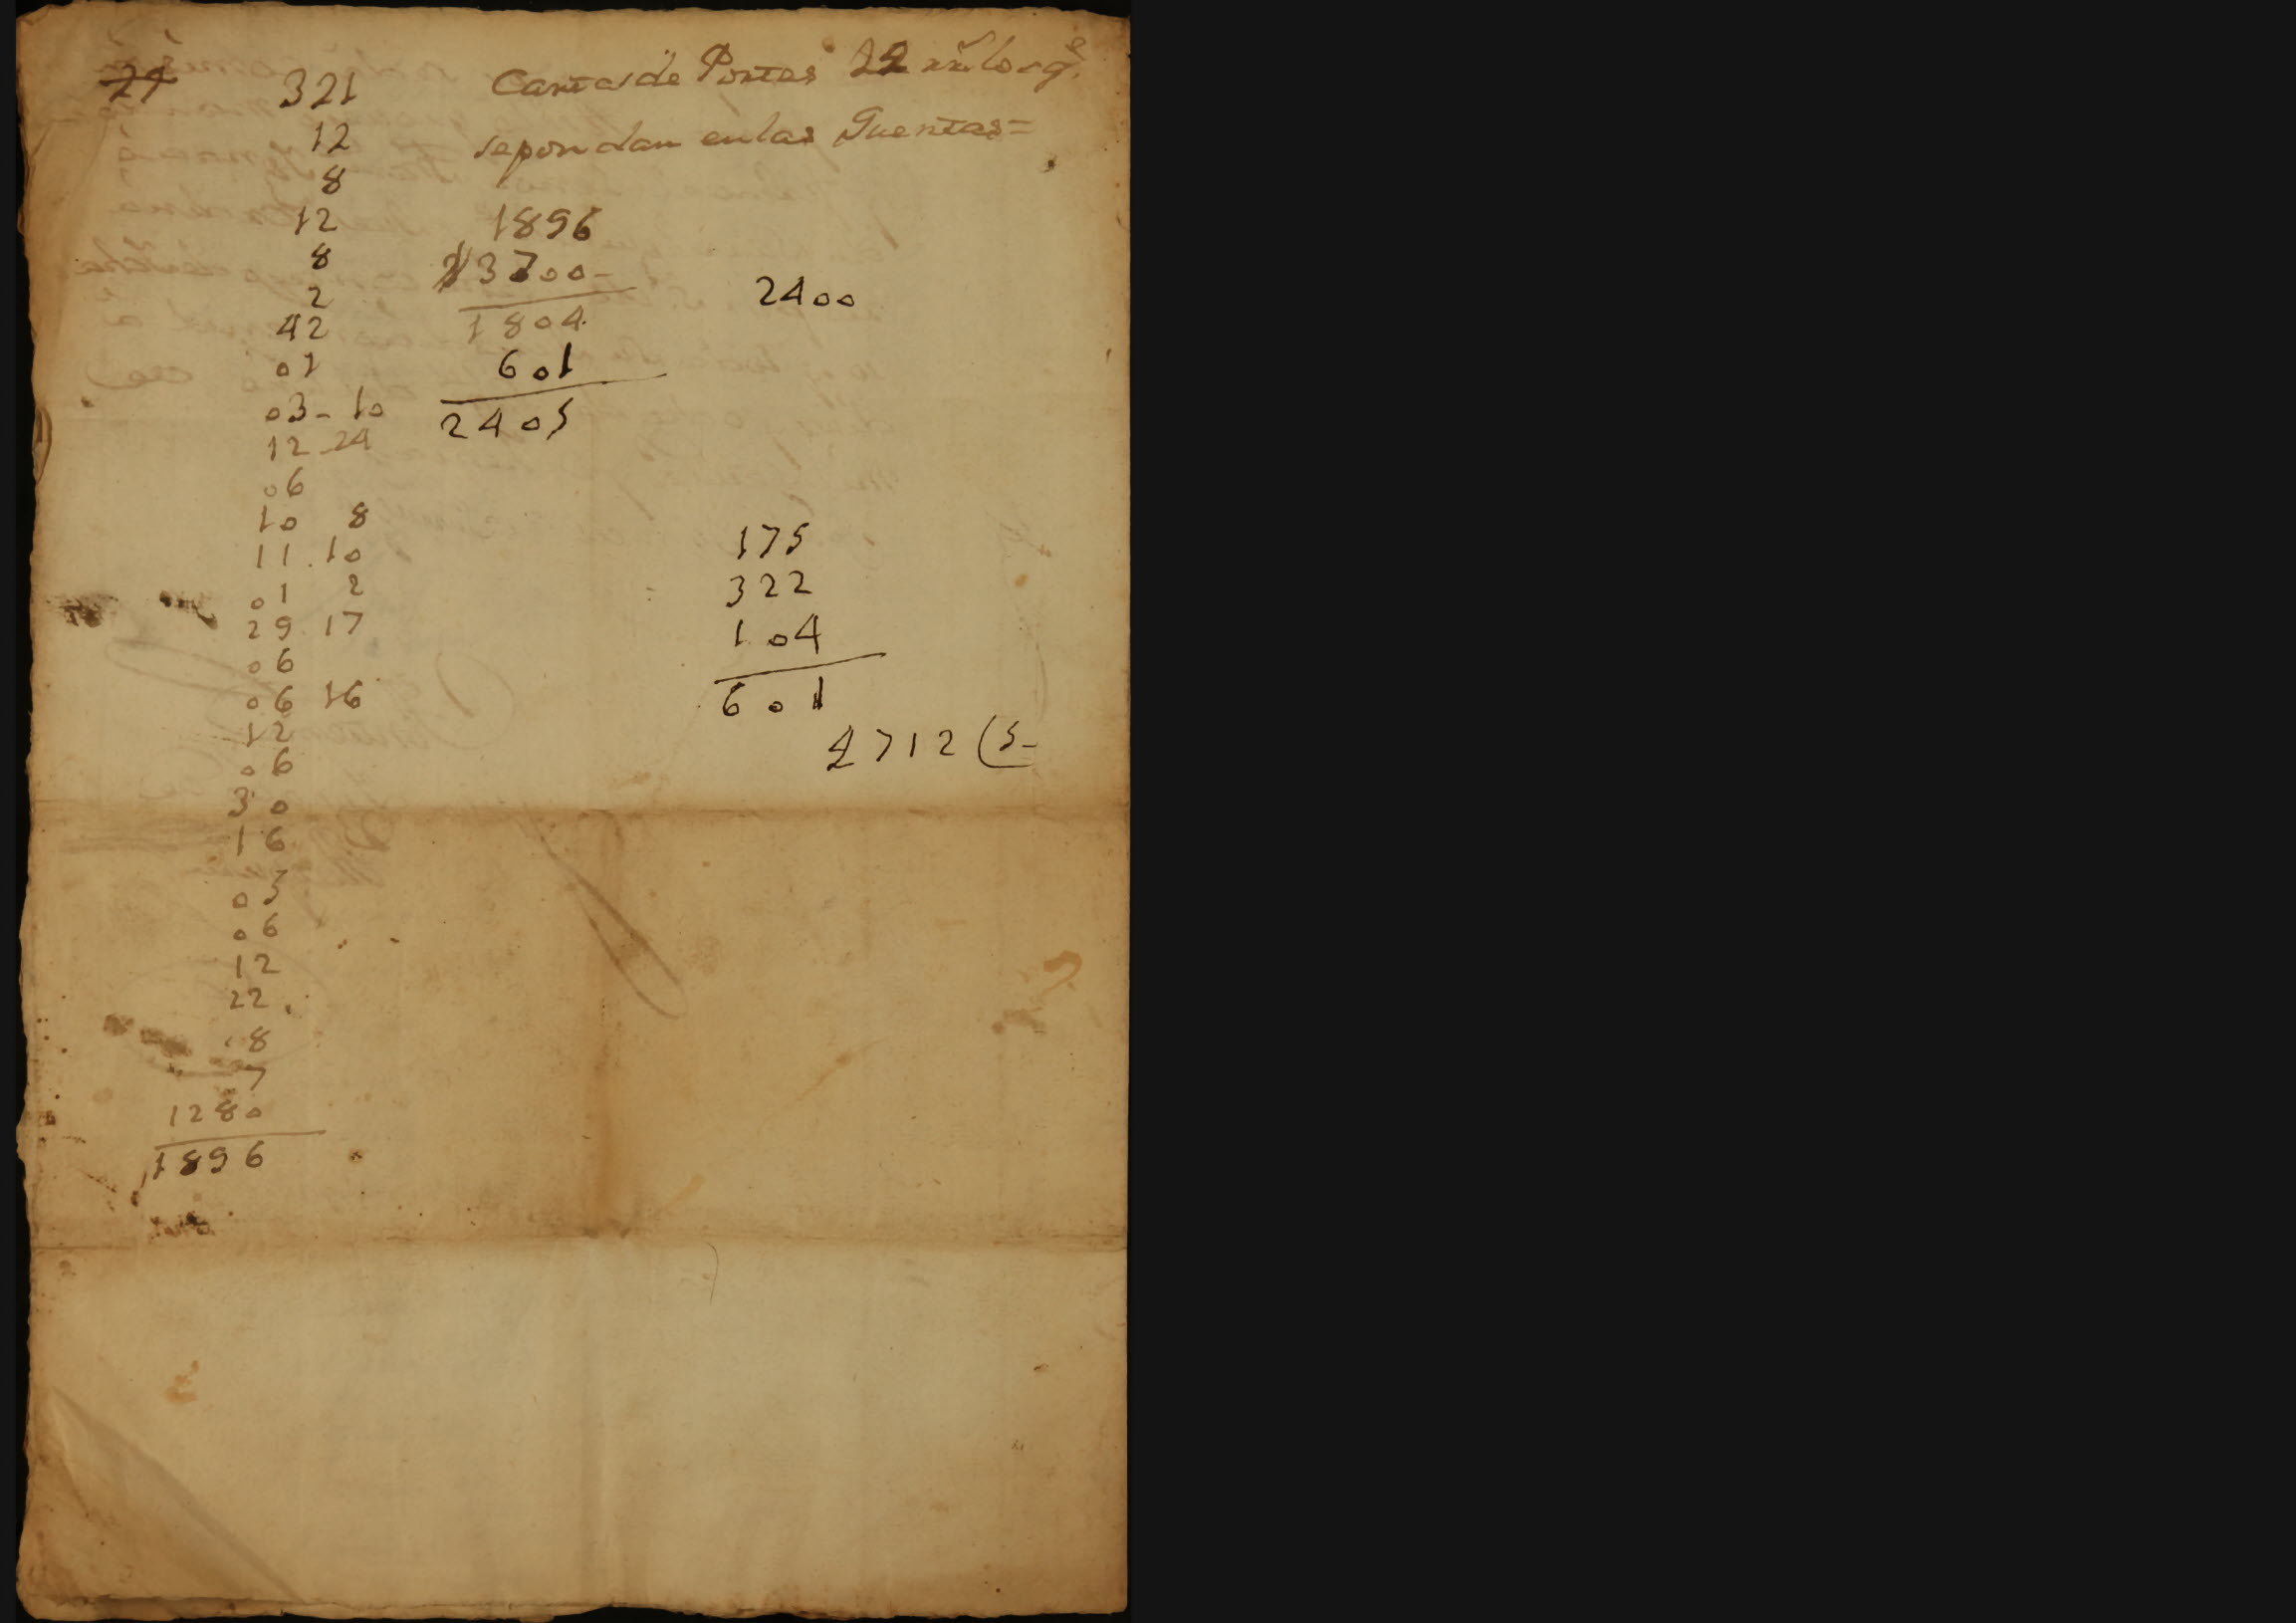 321
12
8
12
8
2
42
01
03 - 10
12 - 24
06
10 8
11 . 10
01 2
29 17
06
06 16
12
06
30
16
05
06
12
22
8
7
1280
1896
Cartas de Portes 22 rr.s lo q.e
se pondan en las Quentas =
1896
3700 -
1804
601
2405
2400
175
322
104
601
2712 (5-